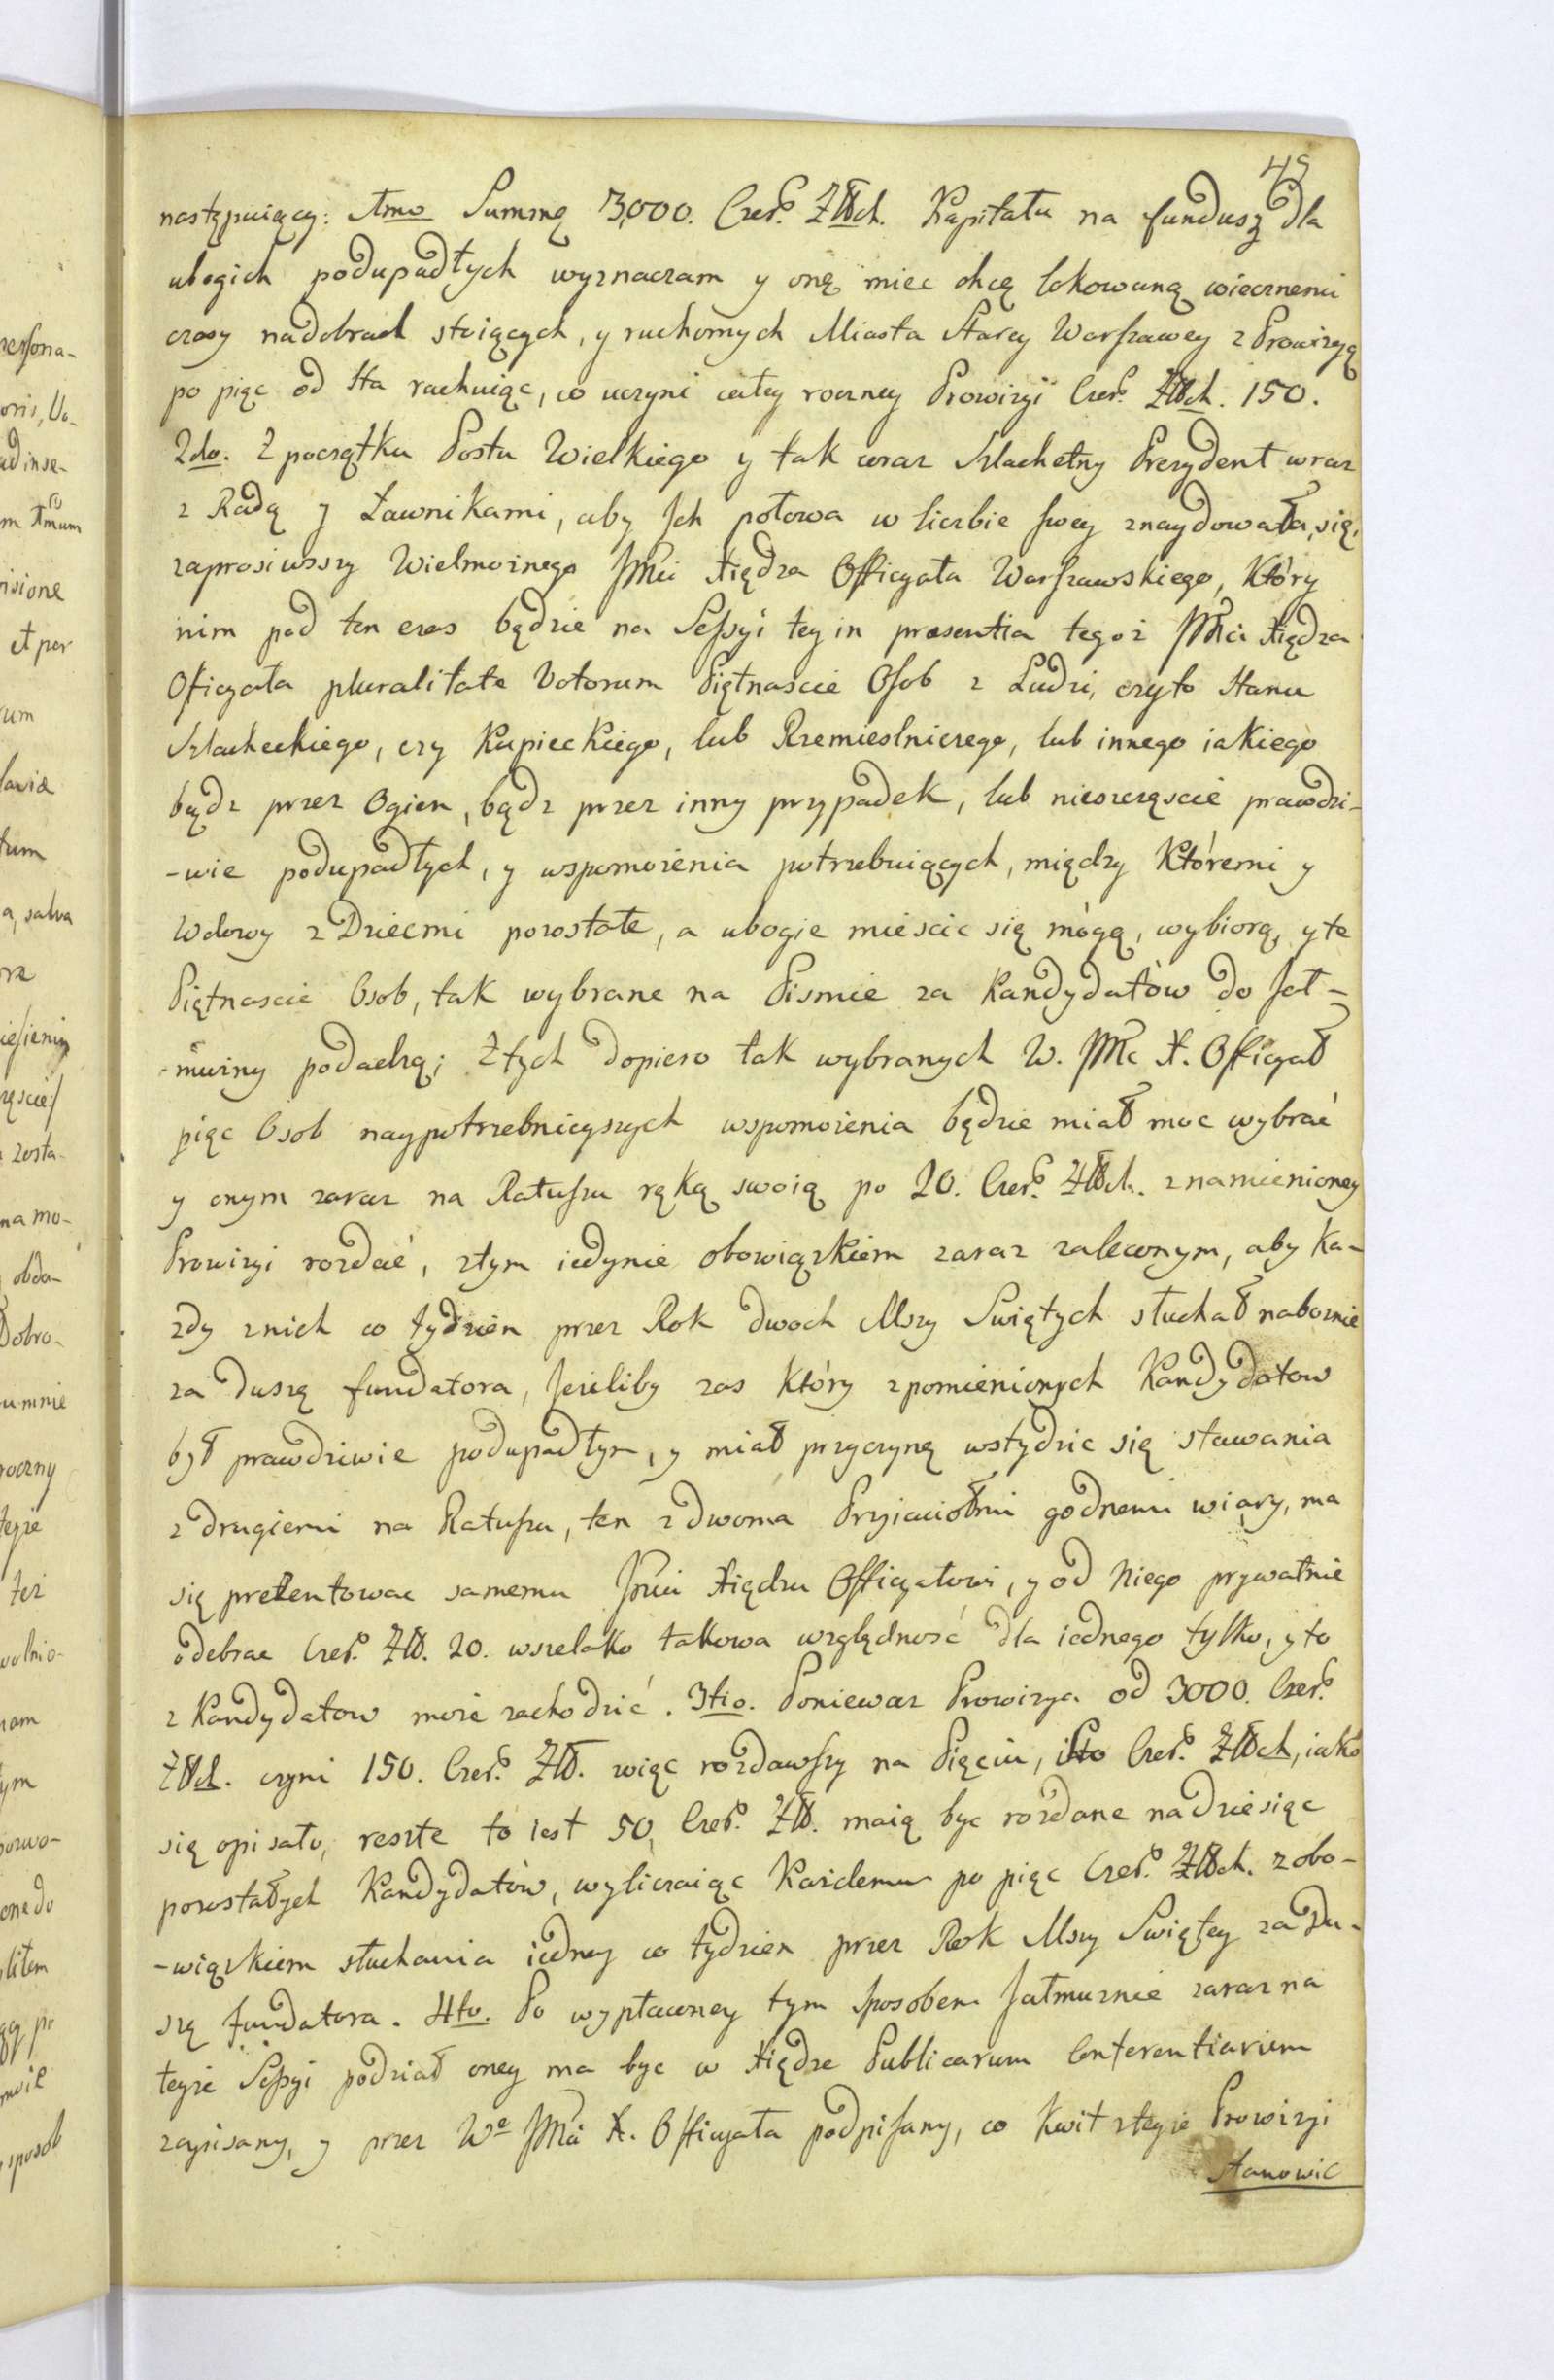 49
następuiący: Imo Summę 3,000. Czer? Złłch. Kapitału na fundusz dla
ubogich podupadłych wyznaczam y onę miec chcę lokowaną wiecznemi
czasy nadobrach stoiących, y ruchomych Miasta Starey Warszawey z Prowizyą
po pięc od sta rachuiąc, co uczyni całey roczney Prowizyi Czer? Złłch. 150.
2do. Z początku Postu Wielkiego y tak wraz Szlachetny Prezydent wraz
z Radą y Ławnikami, aby Ich połowa w liczbie swey znaydowała się,
zaprosiwszy Wielmoznego JMci Xiędza Officyała Warszawskiego, Który
nim pod ten czas będzie na Sessyi tey in præsentia tegoż JMci Xiędza
Oficyała pluralitate Votorum Piętnascie Osob z Ludzi, czyto Stanu
Szlacheckiego, czy Kupieckiego, lub Rzemieslniczego, lub innego iakiego
bądz przez Ogien, bądz przez inny przypadek, lub nieszczęscie prawdzi-
-wie podupadłych, y wspomożenia potrzebuiących, między Któremi y
Wdowy z Dziecmi pozostałe, a ubogie miescic się mogą, wybiorą, y te
Piętnascie Osob, tak wybrane na Pismie za Kandydatów do Jał-
-mużny podadzą; Ztych dopiero tak wybranych W. JMc X. Officyał
pięc Osob naypotrzebnieyszych wspomożenia będzie miał moc wybrać
y onym zaraz na Ratuszu ręką swoią po 20. Czer? Złłch. znamienioney
Prowizyi rozdać, ztym iedynie obowiązkiem zaraz zaleconym, aby Ka-
zdy znich co tydzien przez Rok dwoch Mszy Swiętych słuchał naboznie
za duszę fundatora, Jezeliby zas Który zpomienionych Kandydatow
był prawdziwie podupadłym, y miał przyczynę wstydzic się stawania
z drugiemi na Ratuszu, ten z dwoma Przyiaciołmi godnemi wiary, ma
się prezentowac samemu Jmci Xiędzu Officyałowi, y od Niego prywatnie
odebrac Czer? Złł. 20. wszelako takowa względność dla iednego tylko, y to
z Kandydatow może zachodzić. 3tio. Poniewaz Prowizya od 3000. Czer?
Złłch. czyni 150. Czer? Złł. więc rozdawszy na Pięciu, sto Czer? Złłch, iako
się opisało, resztę to iest 50, Czer? Złł. maią byc rozdane nadziesięc
pozostałych Kandydatów, wyliczaiąc Kazdemu po pięc Czer? Złłch. z obo-
-wiązkiem słuchania iedney co tydzien przez Rok Mszy Swiętey za du-
szę fundatora. 4to. Po wypłaconey tym sposobem Jałmuznie zaraz na
teyże Sessyi podział oney ma byc w Xiędze Publicarum Conferentiarum
zapisany, y przez We JMci X. Officyała podpisany, co Kwit zteyże Prowizyi
stanowic